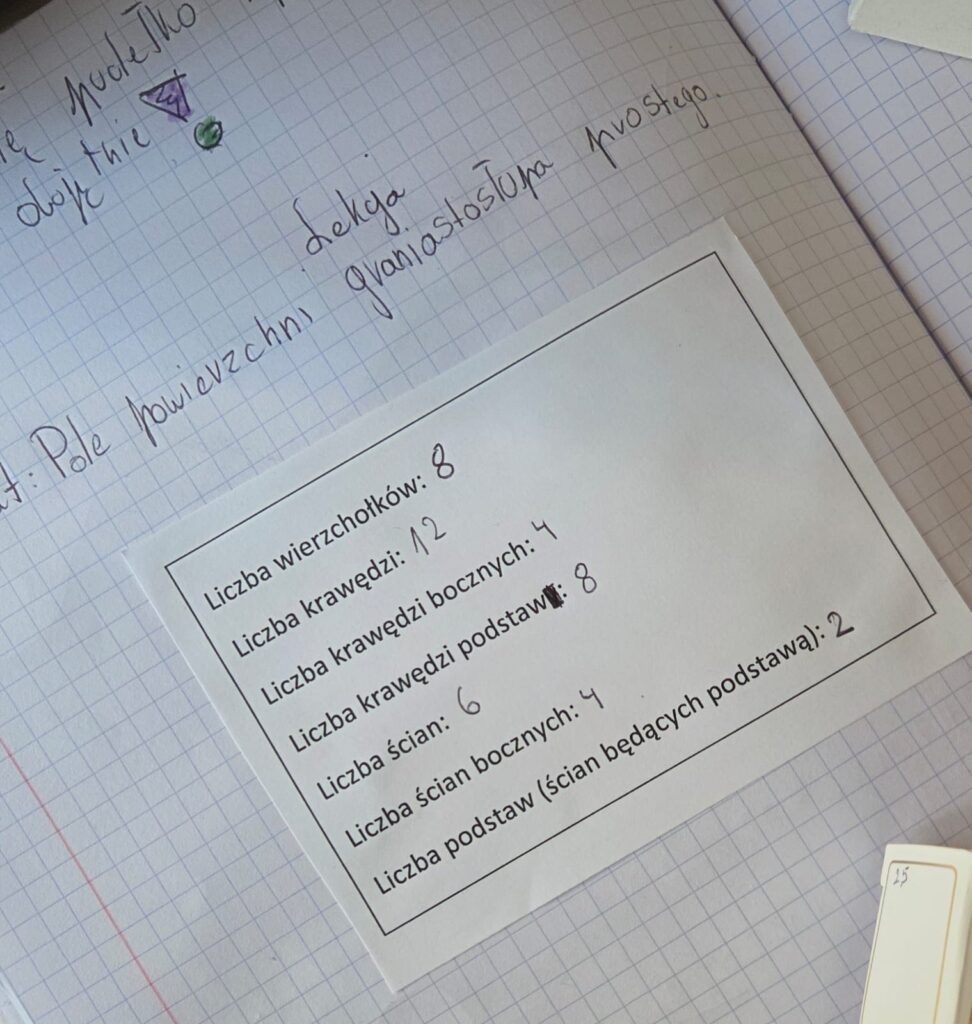 pudełko
dojść tnie
Lekcja
Pole powierzchni graniastosłupa prostego.
Liczba wierzchołków: 8
Liczba krawędzi: 12
Liczba krawędzi bocznych: 4
Liczba krawędzi podstaw: 8
Liczba ścian: 6
Liczba ścian bocznych: 4
Liczba podstaw (ścian będących podstawą): 2
25